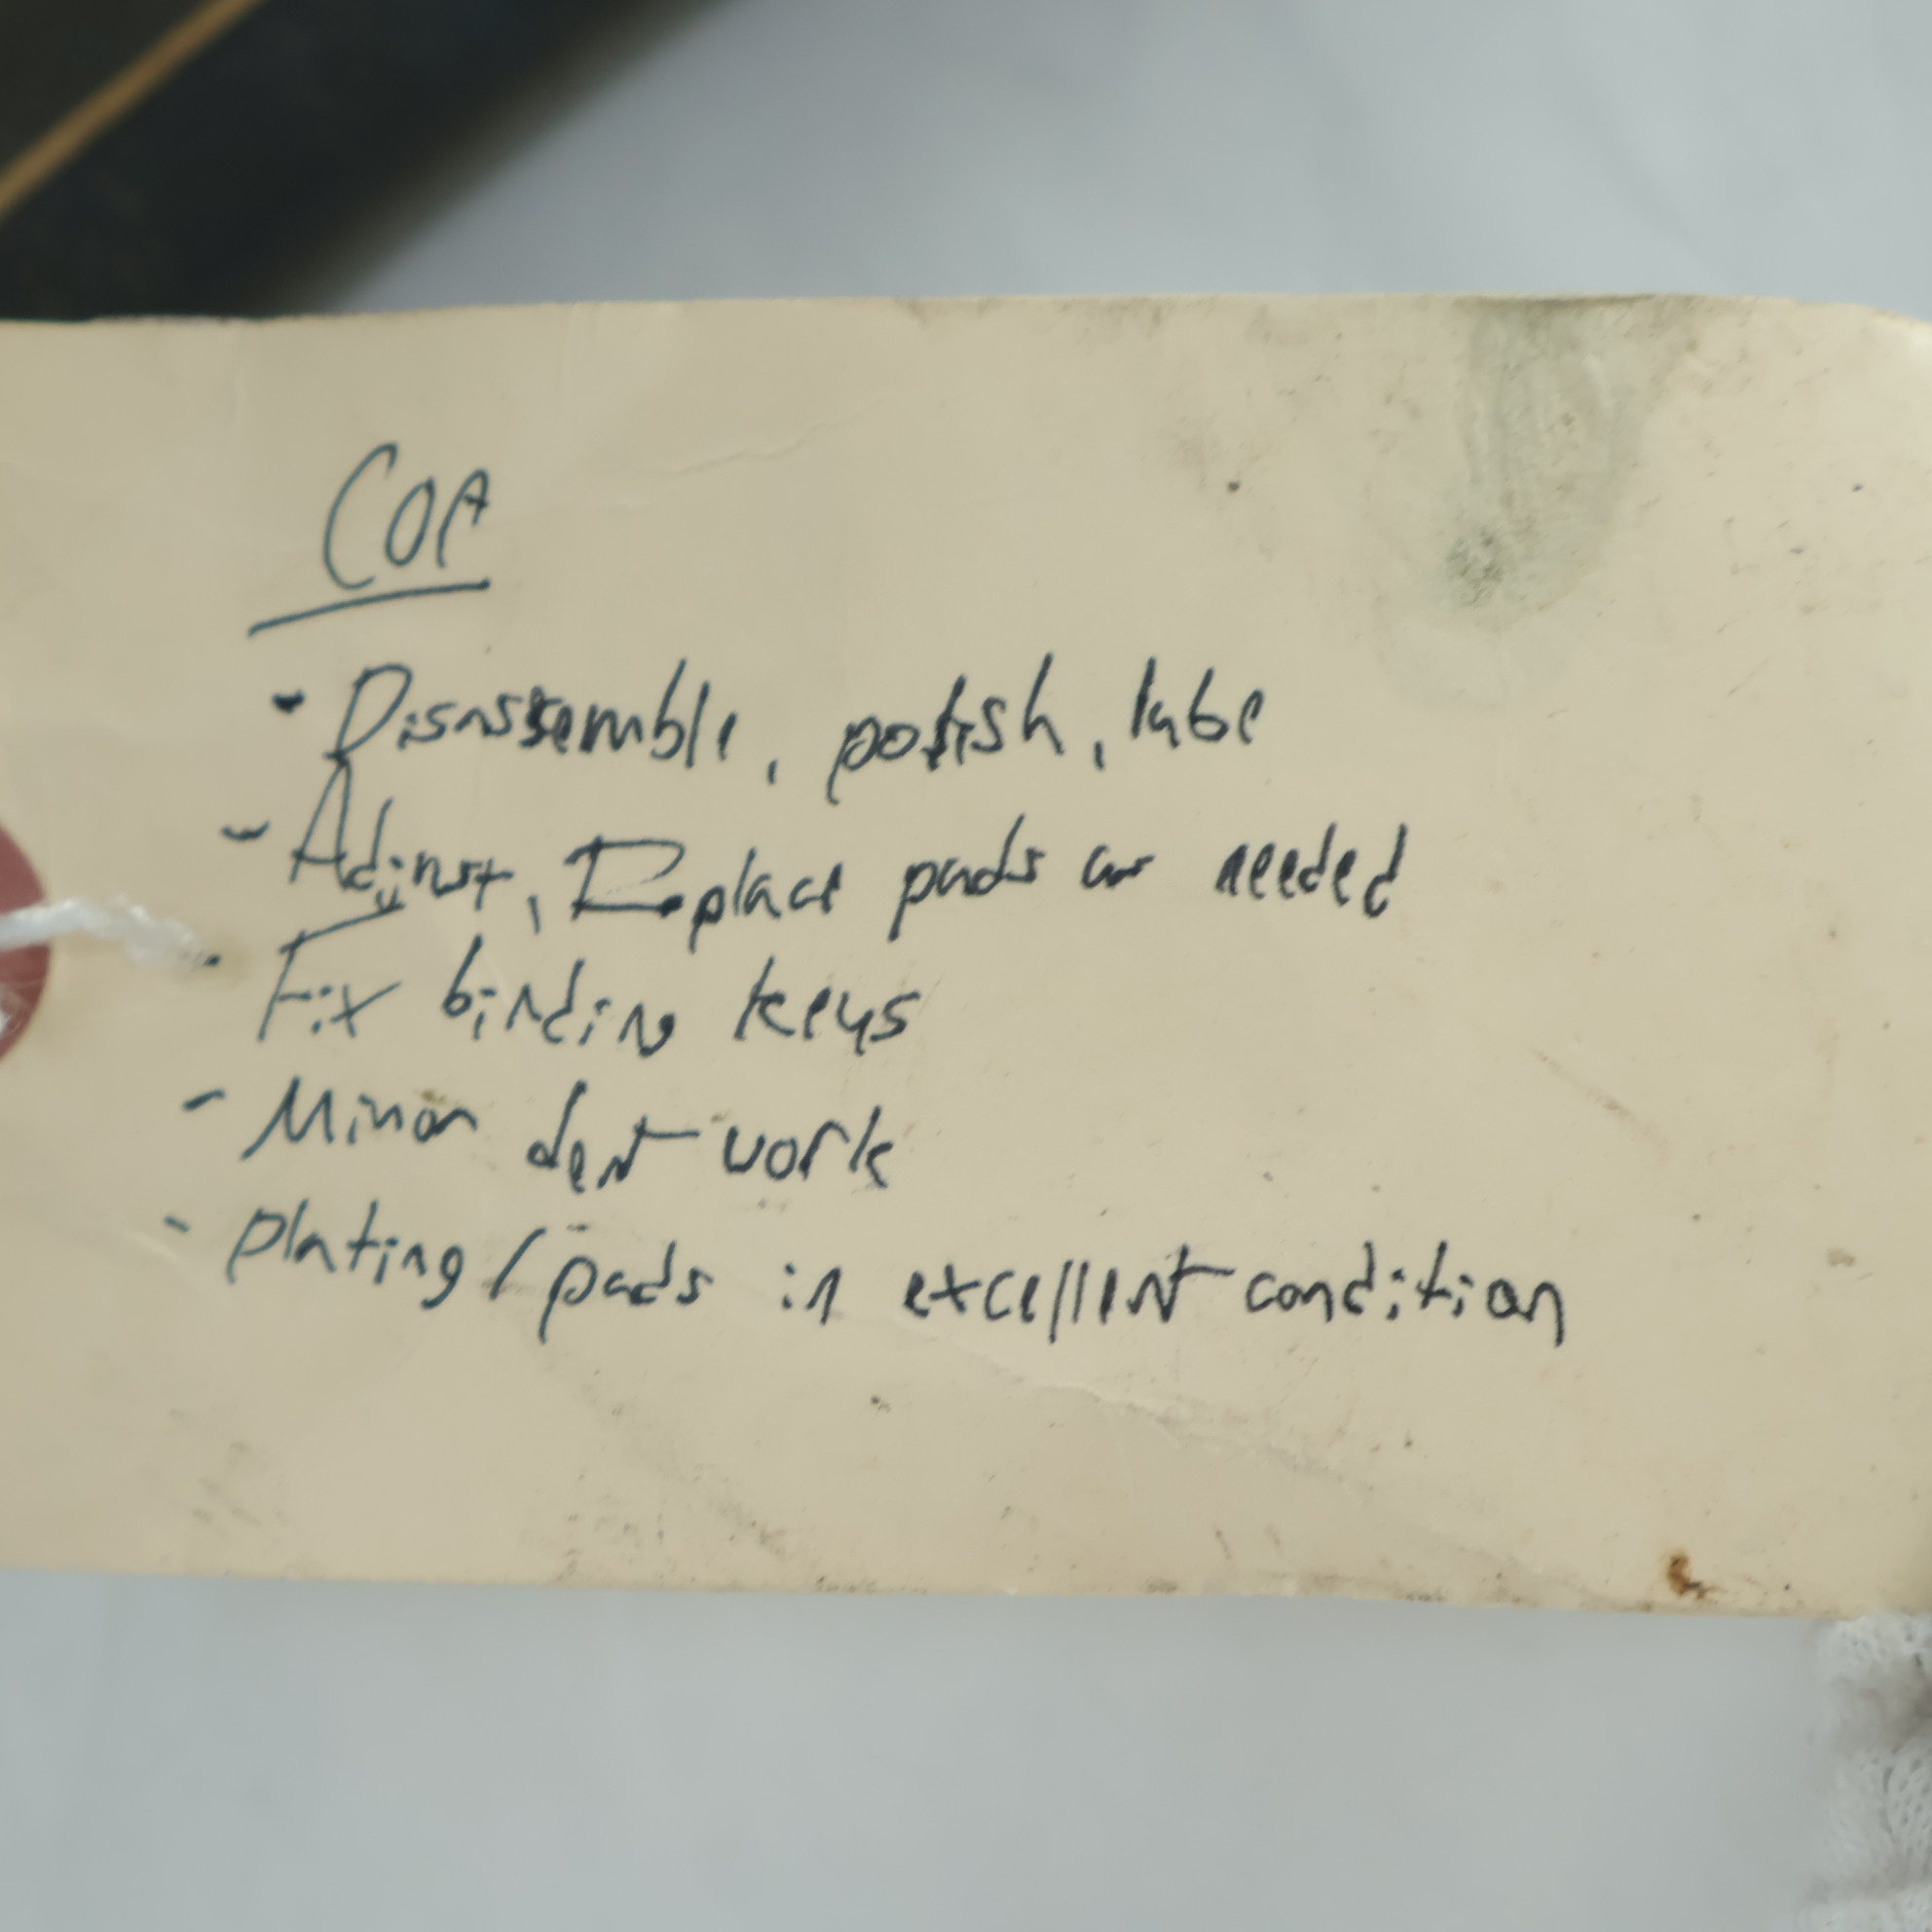 COA
- Disassemble, polish, lube
- Adjust, Replace pads as needed
- Fix binding keys
- Minor dent work
- Plating / pads in excellent condition